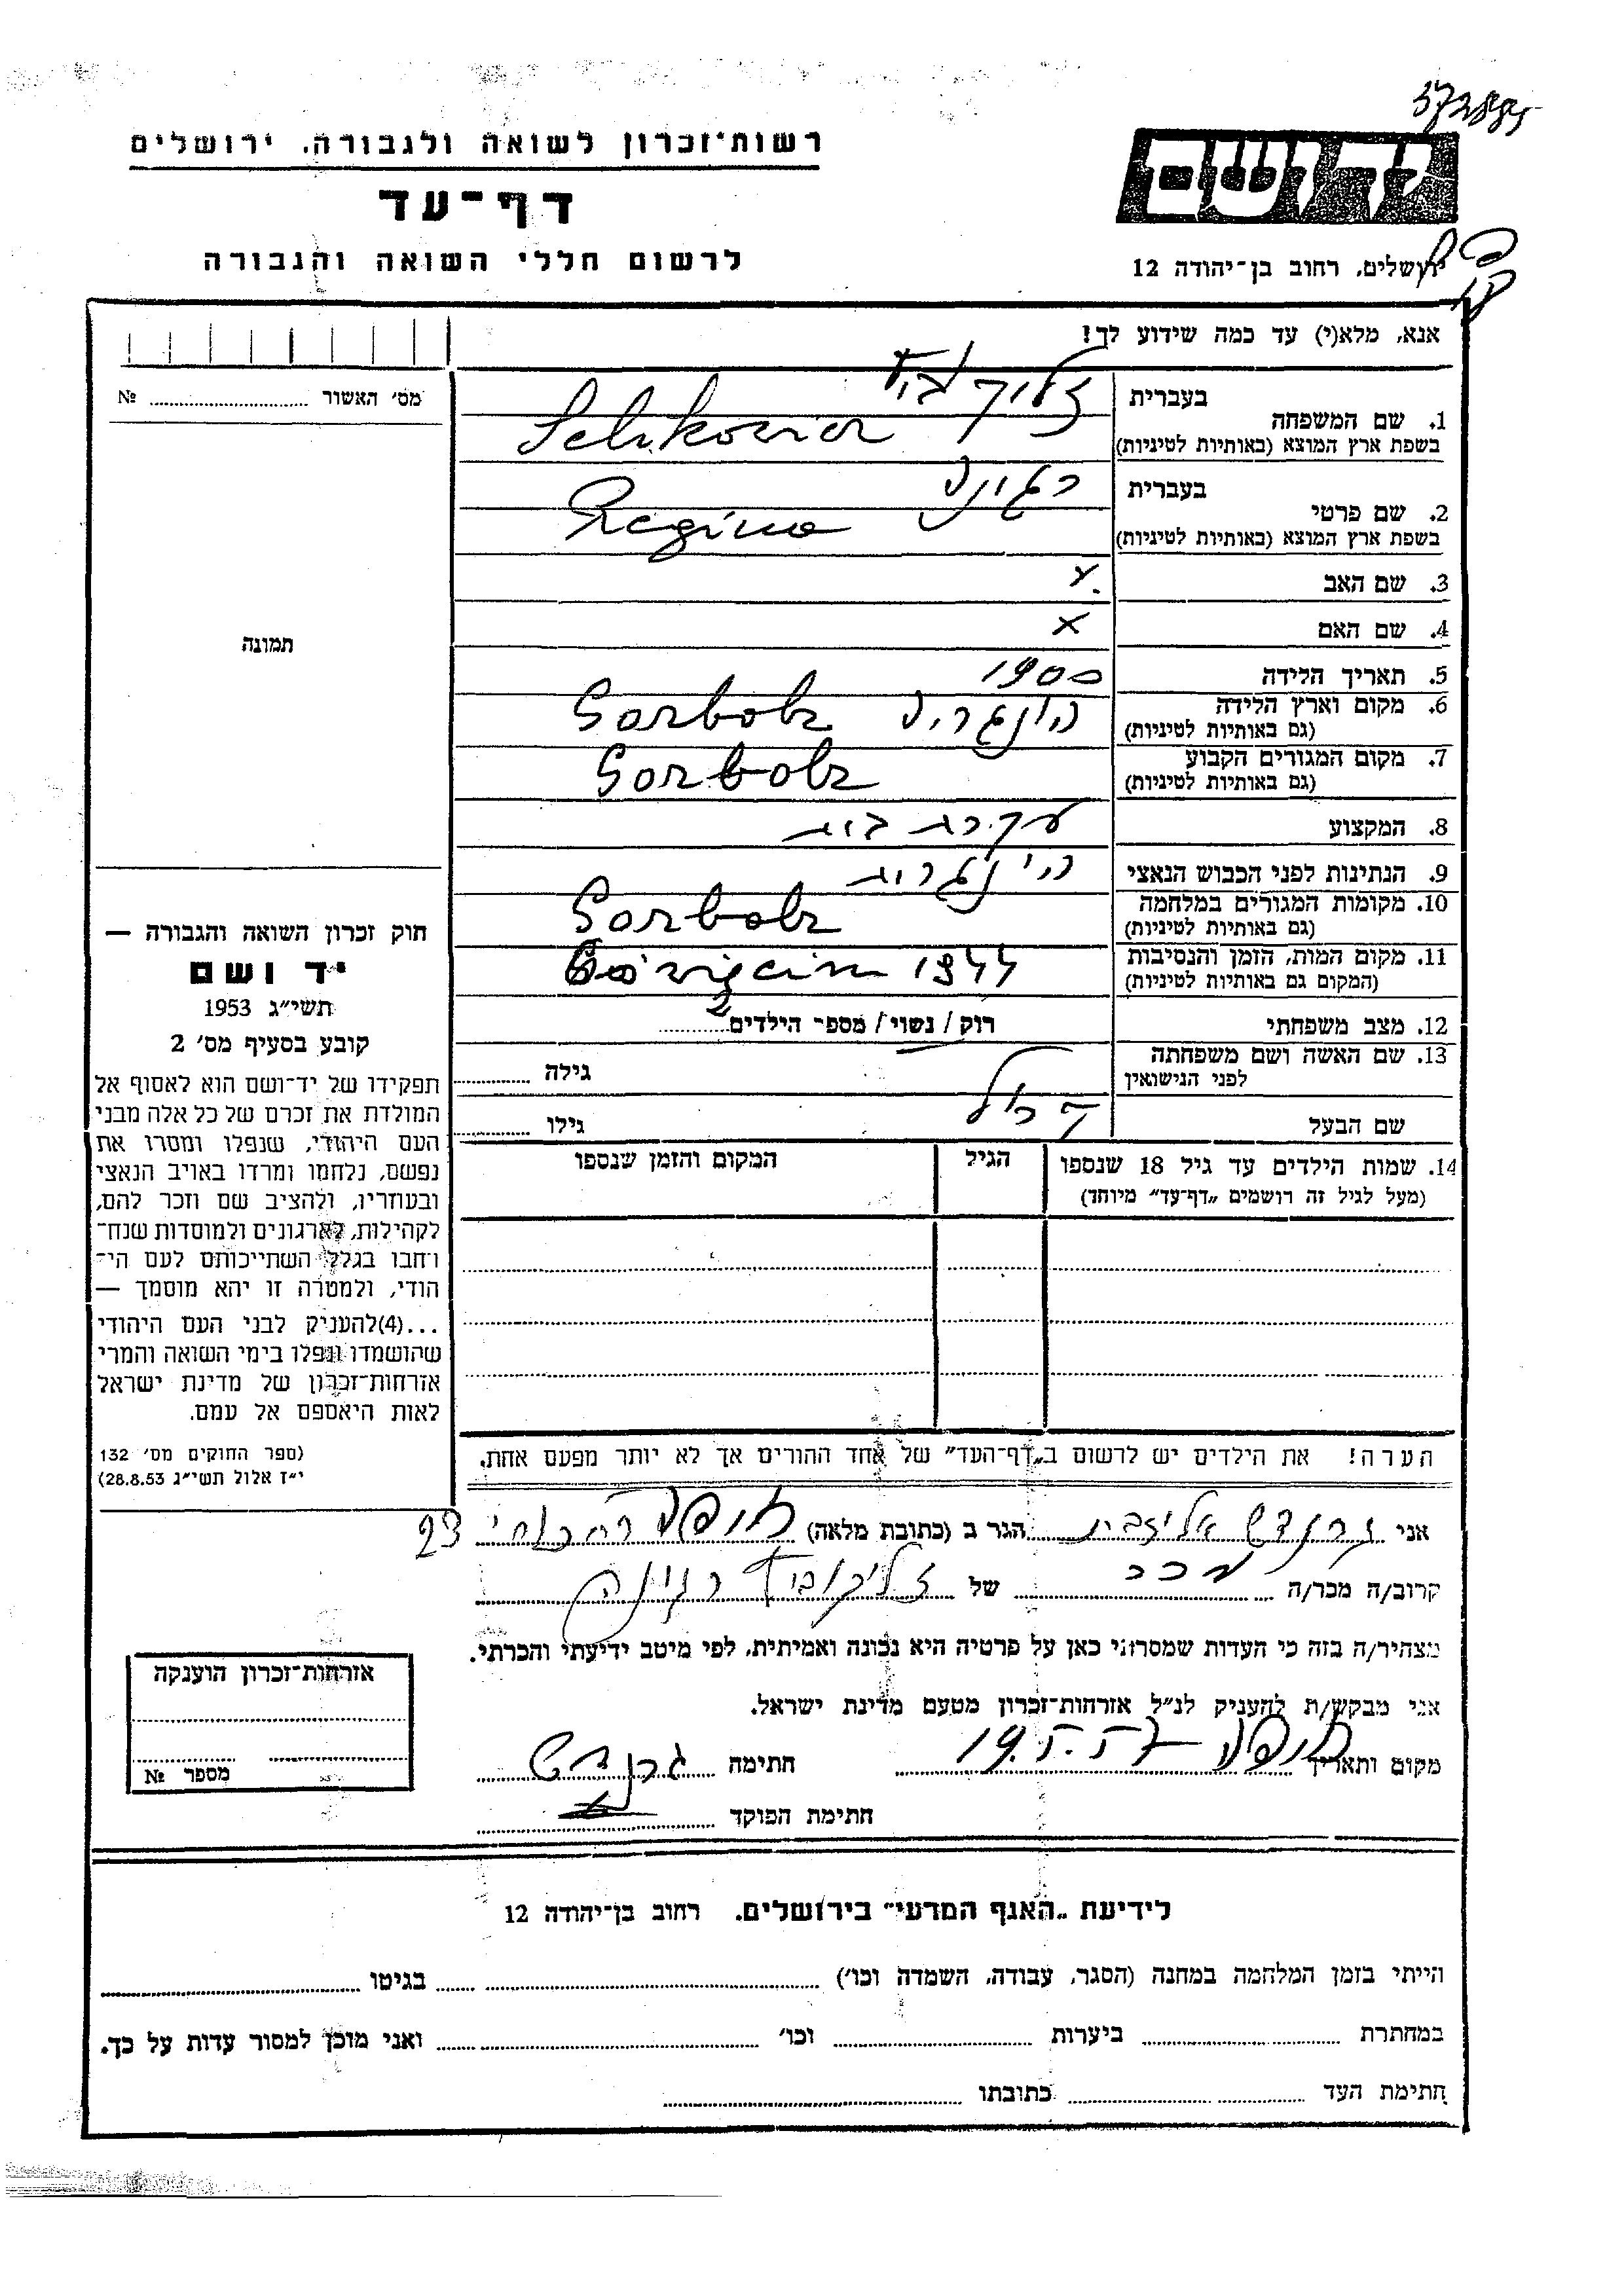 רשות־זכרון לשואה ולגבורה, ירושלים
דף־עד
לרשום חללי השואה והגבורה
יד ושם
ירושלים, רחוב בן־יהודה 12
אנא, מלא(י) עד כמה שידוע לך!
מס׳ האשור №
תמונה
1. שם המשפחה
בעברית
בשפת ארץ המוצא (באותיות לטיניות)
2. שם פרטי
בעברית
רגינה
בשפת ארץ המוצא (באותיות לטיניות)
Regina
3. שם האב
4. שם האם x
5. תאריך הלידה 1900
6. מקום וארץ הלידה
(גם באותיות לטיניות)
הונגריה
7. מקום המגורים הקבוע
(גם באותיות לטיניות)
8. המקצוע עקרת בית
9. הנתינות לפני הכבוש הנאצי הונגרית
10. מקומות המגורים במלחמה
(גם באותיות לטיניות)
11. מקום המות, הזמן והנסיבות
(המקום גם באותיות לטיניות)
1944
12. מצב משפחתי רוק / נשוי / מספר הילדים 2
13. שם האשה ושם משפחתה
לפני הנישואין
גילה
שם הבעל
גילו
14. שמות הילדים עד גיל 18 שנספו
(מעל לגיל זה רושמים „דף־עד״ מיוחד)
הגיל
המקום והזמן שנספו
חוק זכרון השואה והגבורה —
יד ושם
תשי״ג 1953
קובע בסעיף מס׳ 2
תפקידו של יד־ושם הוא לאסוף אל
המולדת את זכרם של כל אלה מבני
העם היהודי, שנפלו ומסרו את
נפשם, נלחמו ומרדו באויב הנאצי
ובעוזריו, ולהציב שם וזכר להם,
לקהילות, לארגונים ולמוסדות שנח־
רבו בגלל השתייכותם לעם הי־
הודי, ולמטרה זו יהא מוסמך —
...(4)להעניק לבני העם היהודי
שהושמדו ונפלו בימי השואה והמרי
אזרחות־זכרון של מדינת ישראל
לאות היאספם אל עמם.
(ספר החוקים מס׳ 132
י״ז אלול תשי״ג 28.8.53)
הערה! את הילדים יש לרשום ב„דף־העד״ של אחד ההורים אך לא יותר מפעם אחת.
אני אליזבית הגר ב (כתובת מלאה) חיפה 23
קרוב/ה מכר/ה מכר של זליקוביץ רגינה
מצהיר/ה בזה כי העדות שמסרתי כאן על פרטיה היא נכונה ואמיתית, לפי מיטב ידיעתי והכרתי.
אני מבקש/ת להעניק לנ״ל אזרחות־זכרון מטעם מדינת ישראל.
מקום ותאריך חיפה חתימה
חתימת הפוקד
אזרחות־זכרון הוענקה
מספר №
לידיעת „האגף המדעי״ בירושלים, רחוב בן־יהודה 12
הייתי בזמן המלחמה במחנה (הסגר, עבודה, השמדה וכו׳) בגיטו
במחתרת ביערות וכו׳ ואני מוכן למסור עדות על כך.
חתימת העד כתובתו